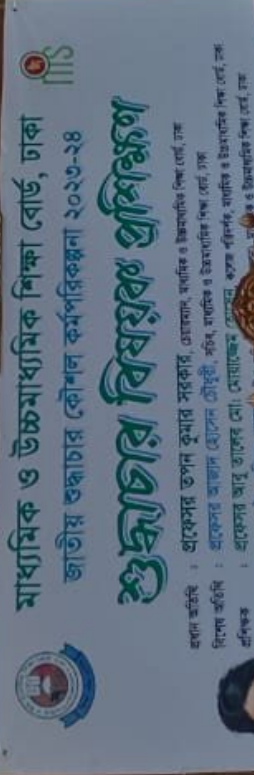 মাধ্যমিক ও উচ্চমাধ্যমিক শিক্ষা বোর্ড, ঢাকা
জাতীয় শুদ্ধাচার কৌশল কর্মপরিকল্পনা ২০২৩-২৪
শুদ্ধাচার বিষয়ক প্রশিক্ষণ
প্রধান অতিথি : প্রফেসর তপন কুমার সরকার, চেয়ারম্যান, মাধ্যমিক ও উচ্চমাধ্যমিক শিক্ষা বোর্ড, ঢাকা
বিশেষ অতিথি : প্রফেসর আজাদ হোসেন চৌধুরী, সচিব, মাধ্যমিক ও উচ্চমাধ্যমিক শিক্ষা বোর্ড, ঢাকা
প্রশিক্ষক : প্রফেসর আবু তালেব মো: মোয়াজ্জেম হোসেন, কলেজ পরিদর্শক, মাধ্যমিক ও উচ্চমাধ্যমিক শিক্ষা বোর্ড, ঢাকা
ও উচ্চমাধ্যমিক শিক্ষা বোর্ড, ঢাকা